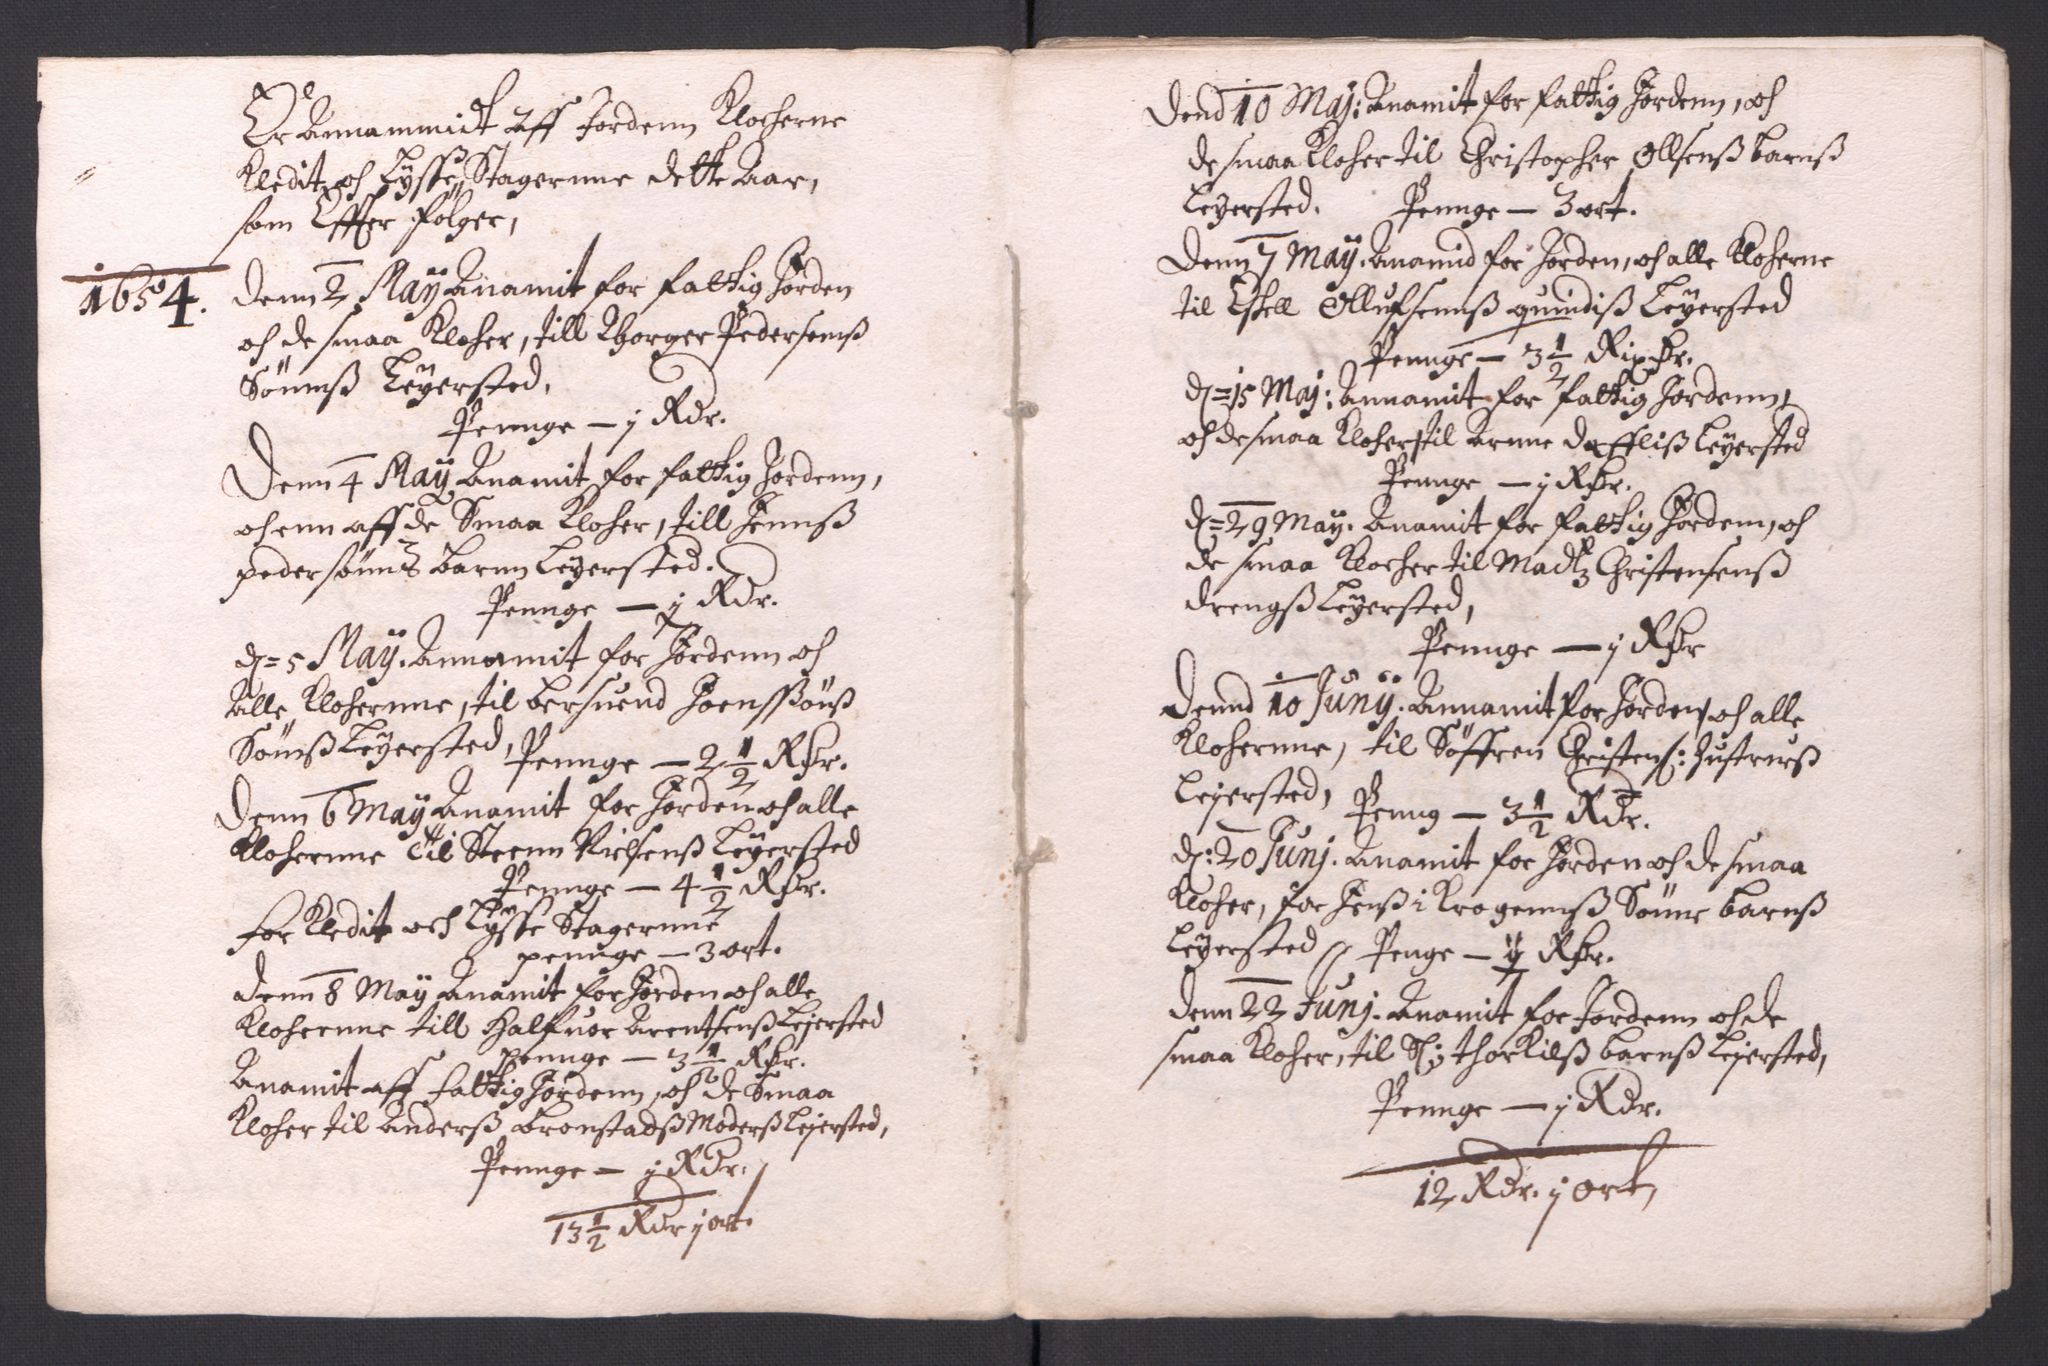 Er Annammidt Aff Jordenn Klocherne
Kledit och Lysse Stagernne dette Aar,
som Effter følger,
1654.
Denn 2 Maÿ Anamit for fattig Jorden
och de smaa Klocher, till Thorger Pedersenß
Sönnß Leÿersted,
Pennge — j Rdr.
Denn 4 Maÿ Anamit for fattig Jordenn,
och enn aff de Smaa Klocher, till Jennß
pedersönns barnn Leÿersted.
Pennge — j Rdr.
d= 5 Maÿ. Annamit for Jordenn och
Alle Klochernne, til Bersuend Joenssönß
Sönß Leÿersted,
Pennge — 2 1/2 Rdr.
Denn 6 Maÿ Anamit for Jorden och alle
Klochernne til Steenn Nielsenß Leÿersted
Pennge — 4 1/2 Rdr.
for Kledit och Lysse Stagernne
pennge — 3 ort.
Denn 8 Maÿ Anamit for Jorden och alle
Klochernne till Halfuor Arentsenß Lejersted
pennge — 3 1/2 Rdr.
Anamit aff fattig Jordenn, och de Smaa
Klocher til Anderß Bronstadß Moderß Lejersted,
Pennge — j Rdr.
13 1/2 Rdr j ort.
Dend 10 Maj: Anamit for fattig Jordenn, och
de smaa Klocher til Christopher Ollsenß barnß
Leÿersted. Pennge — 3 ort.
Denn 7 Maÿ. Anamid for Jorden, och alle Klocherne
til Eskell Ollufsennß quindiß Leÿersted
Pennge — 3 1/2 Rixdr.
d= 15 Maj: Annamit for fattig Jordenn,
och de smaa Klocher til Arnne Leÿersted
Pennge — j Rdr.
d= 29 Maÿ. Anamit for fattig Jordenn, och
de smaa Klocher til Madtz Christensenß
drengß Leÿersted,
Pennge — j Rdr
Dennd 10 Junÿ. Annamit for Jorden och alle
Klochernne, til Söffren Christens: Hustruß
Lejersted, Penng — 3 1/2 Rdr.
d: 20 Junj. Anamit for Jorden och de smaa
Klocher, for Jenß i Krogennß Sönne barnß
Leÿersted // Penge — j Rdr.
Denn 22 Junj. Anamit for Jordenn och de
smaa Klocher, til Sl: thorkilß barnß Lejersted,
Pennge — j Rdr.
12 Rdr. j ort,